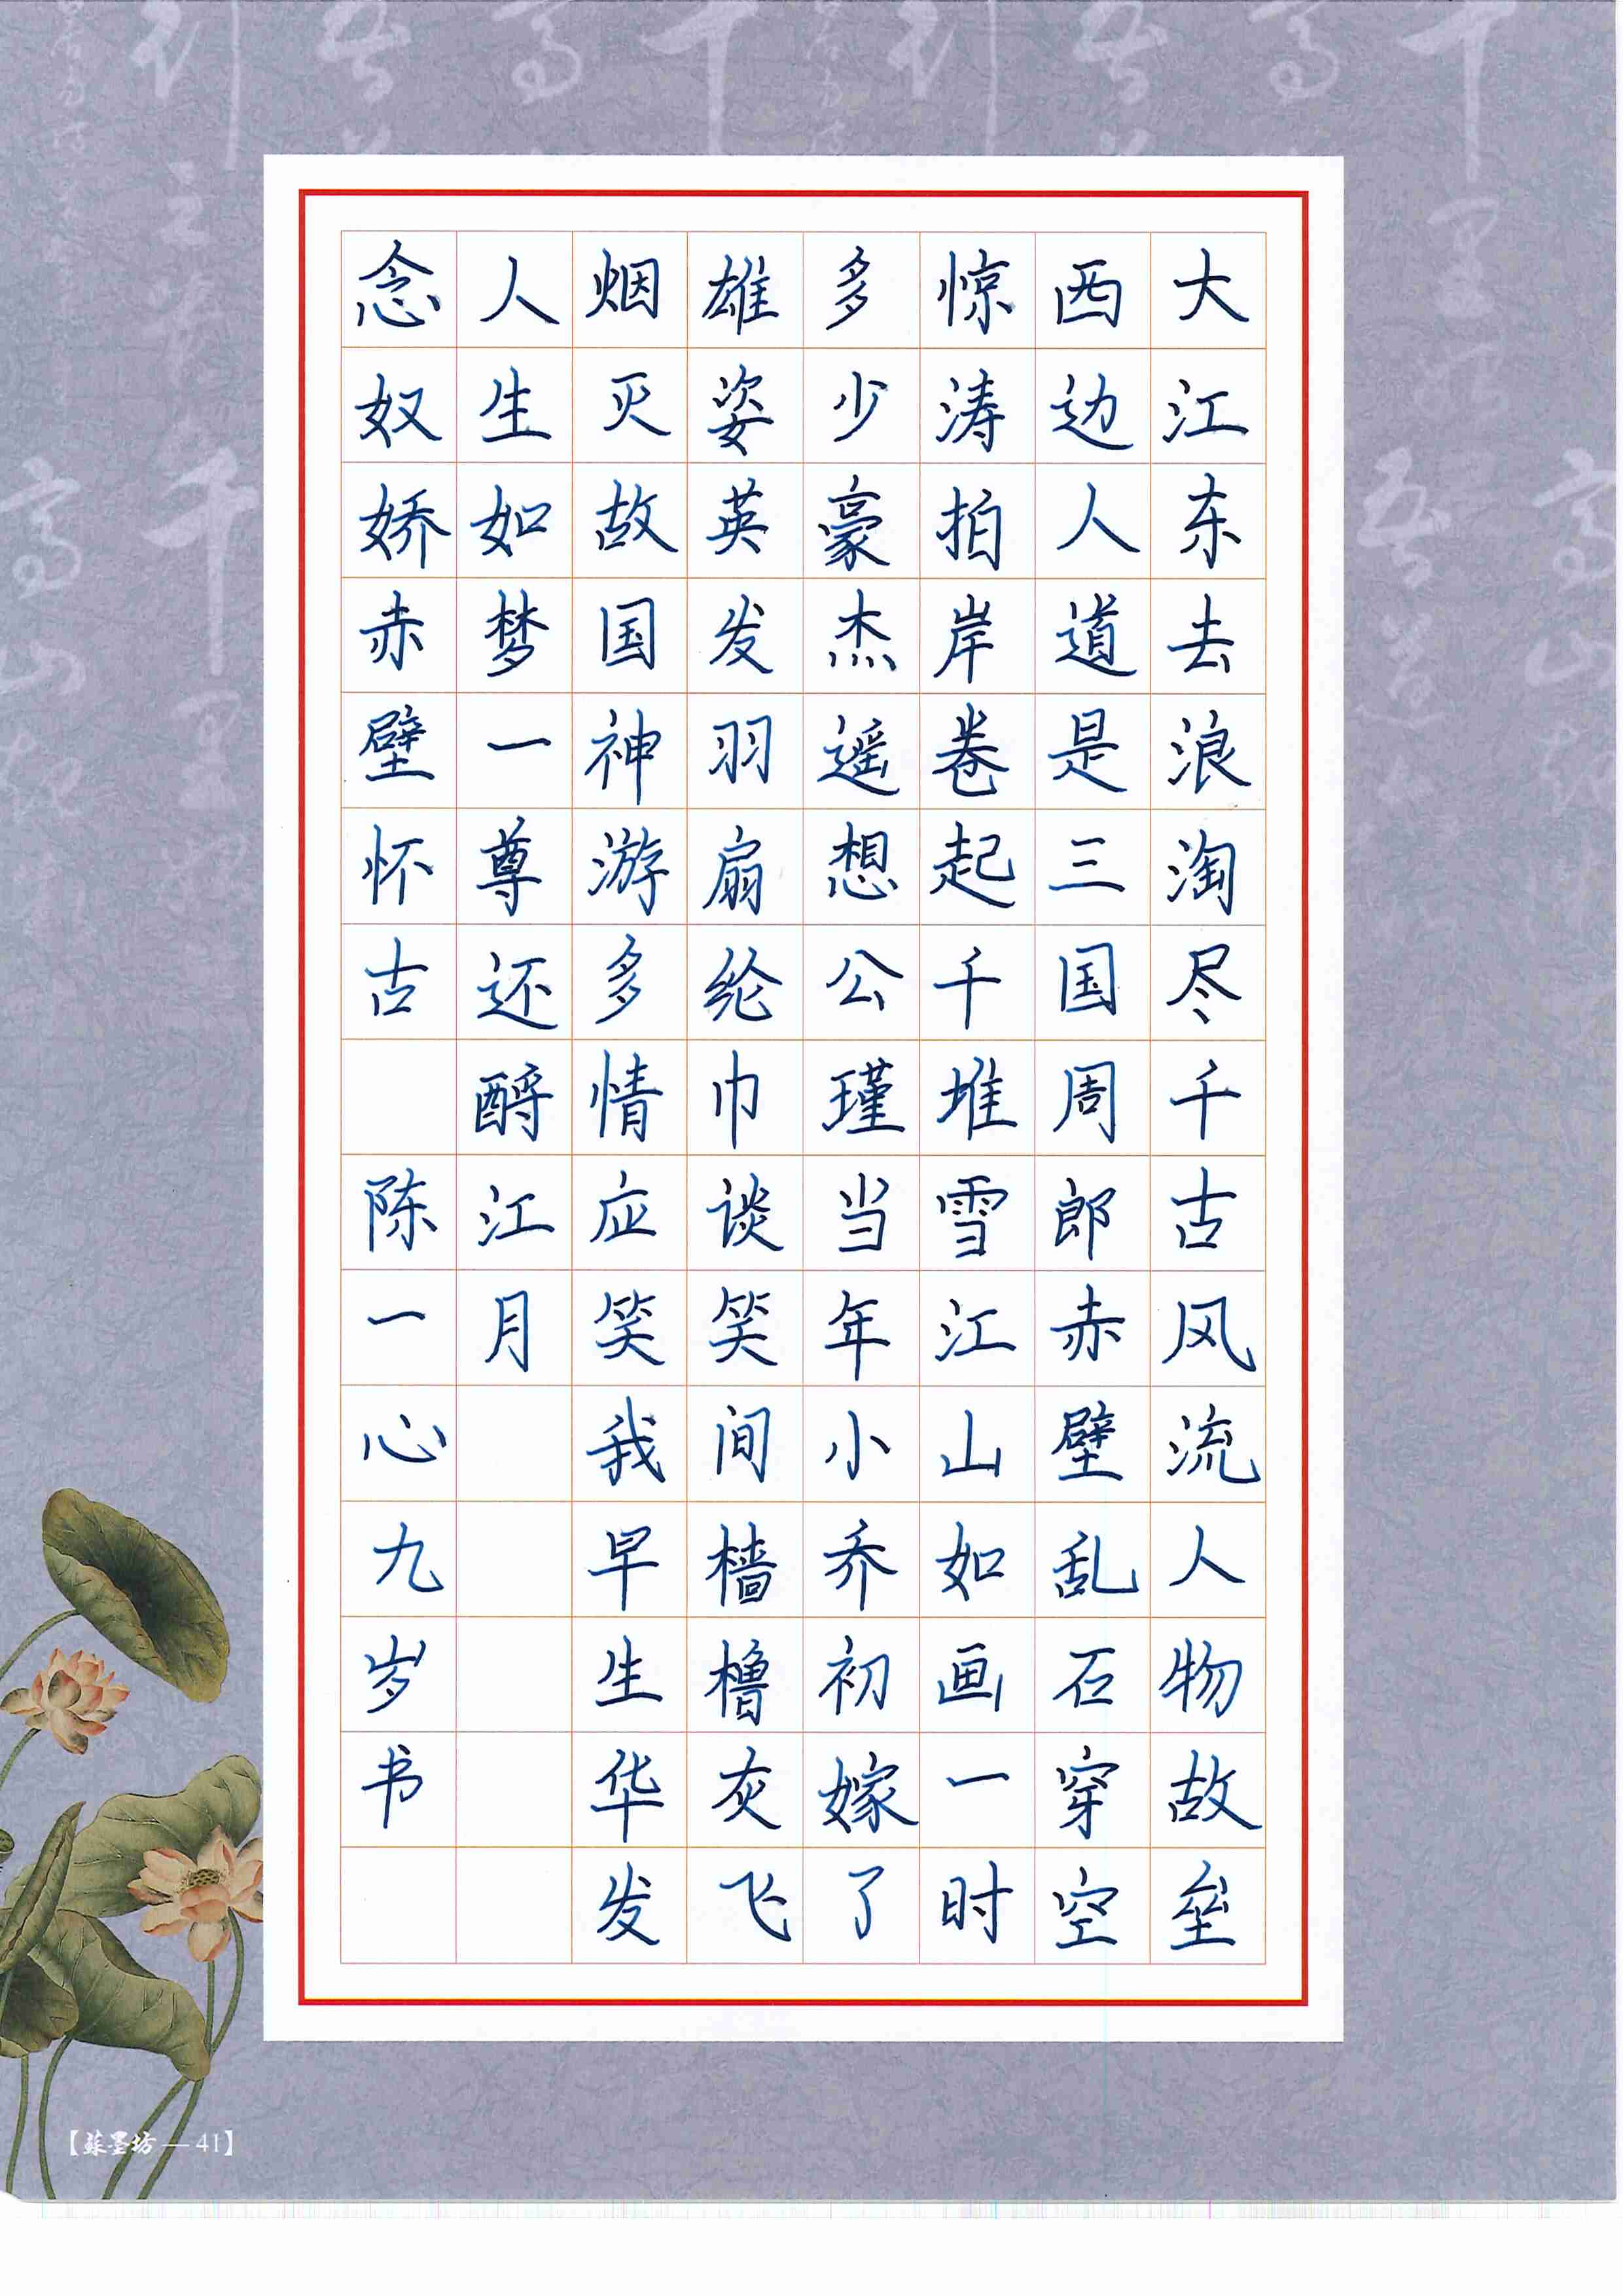 大江东去浪淘尽千古风流人物故垒
西边人道是三国周郎赤壁乱石穿空
惊涛拍岸卷起千堆雪江山如画一时
多少豪杰遥想公瑾当年小乔初嫁了
雄姿英发羽扇纶巾谈笑间樯橹灰飞
烟灭故国神游多情应笑我早生华发
人生如梦一尊还酹江月
念奴娇赤壁怀古 陈一心九岁书
【蘇墨坊—41】